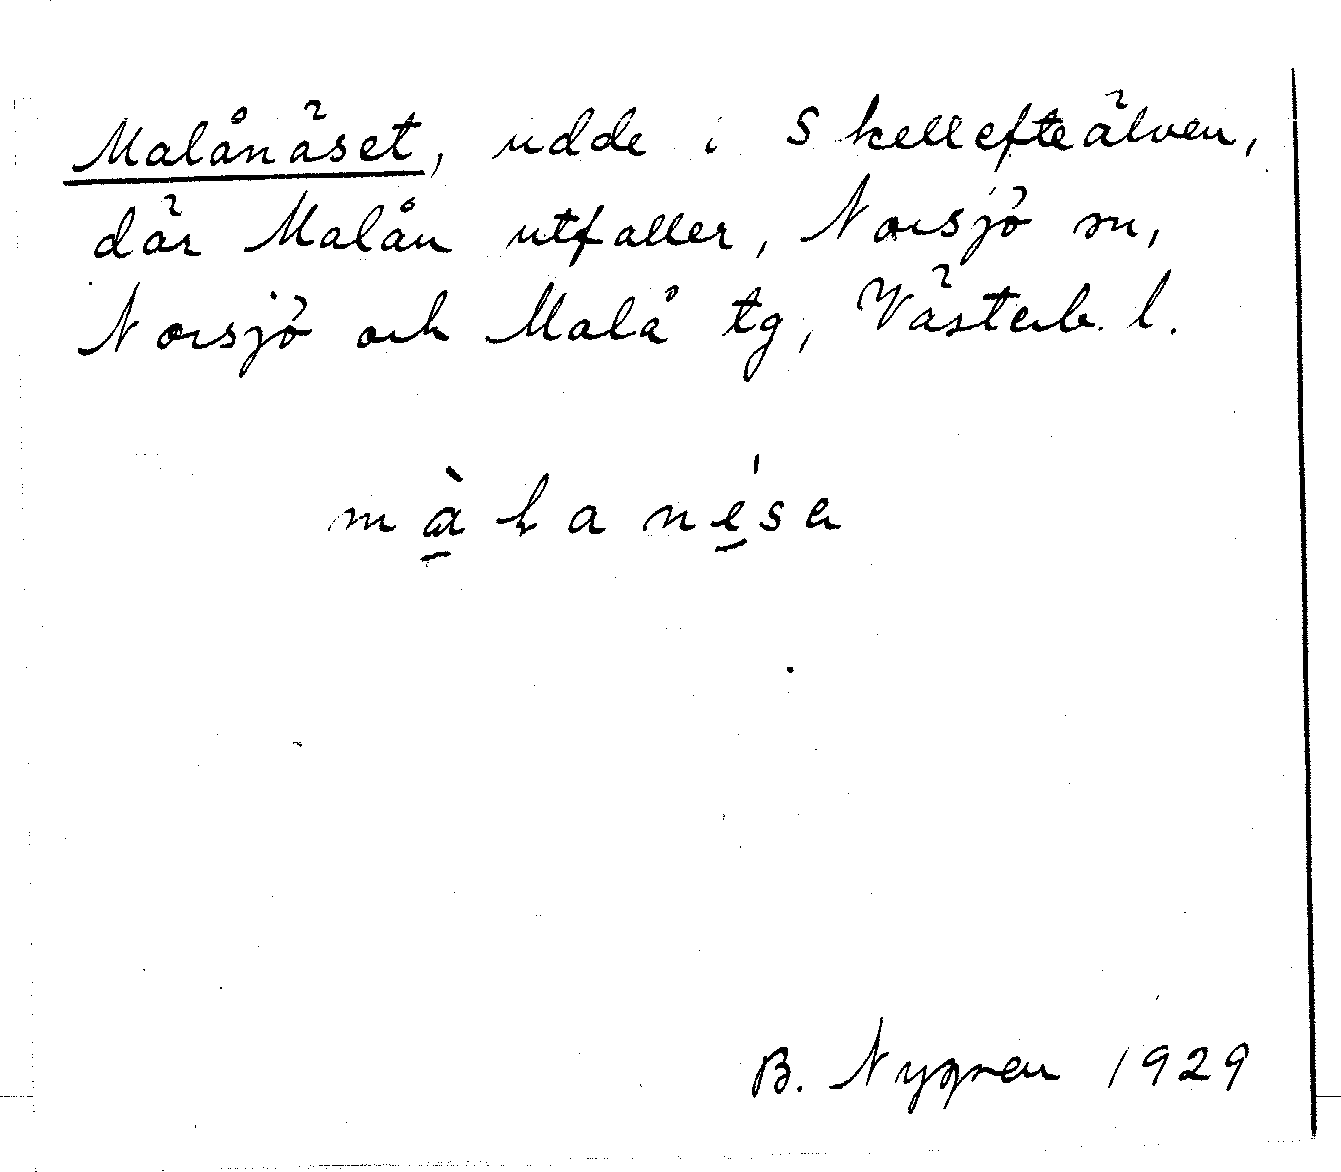 Malånäset, udde i Skellefteälven,
där Malån utfaller, Norsjö sn,
Norsjö och Malå tg, Västerb. l.
B. Nygren 1929